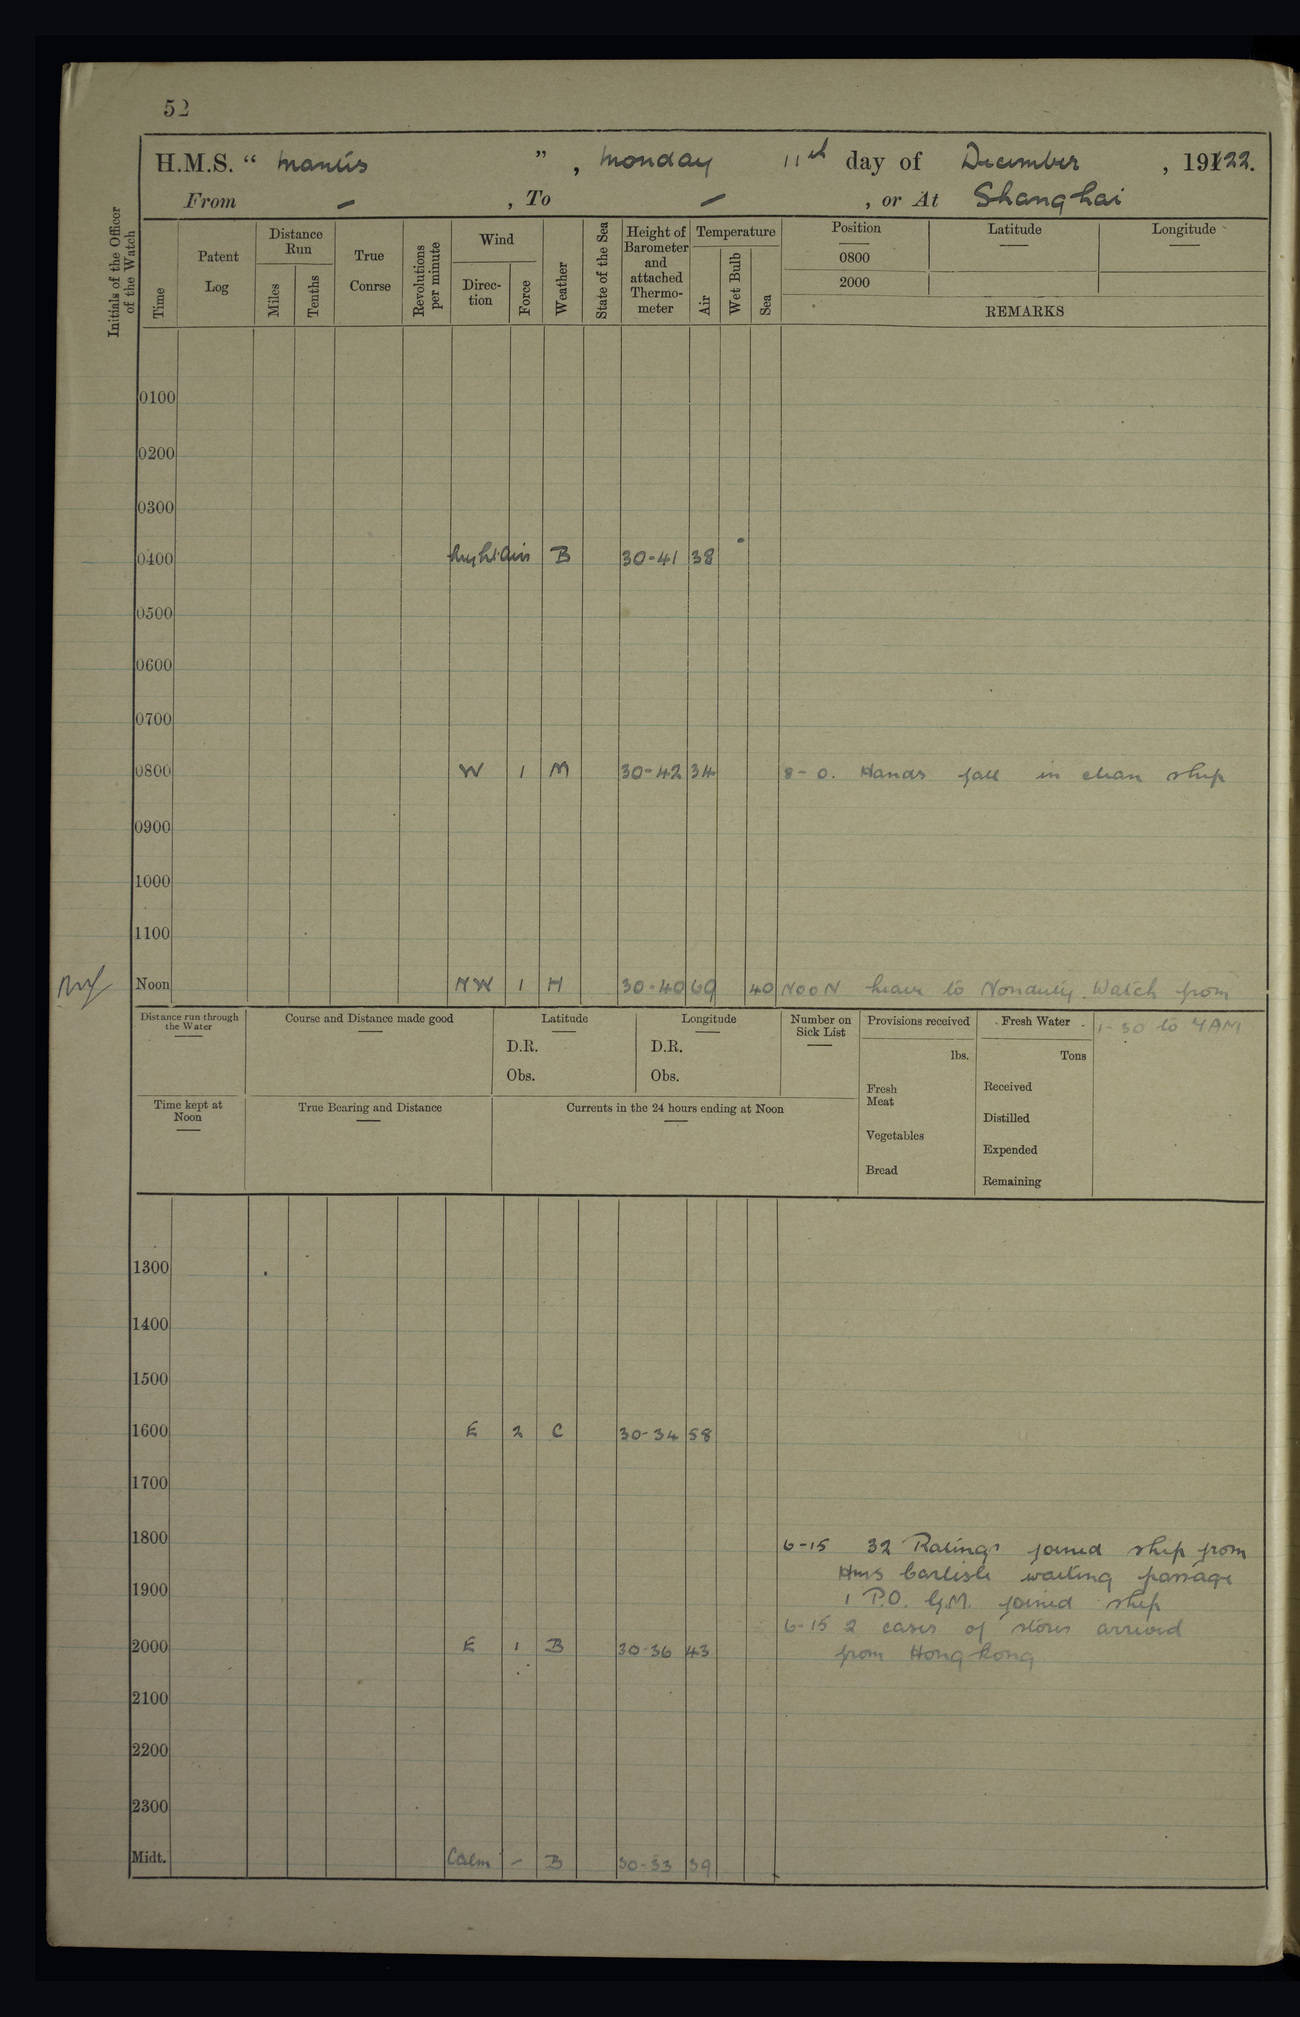 52
H.M.S. “ Mantis ” , Monday 11th day of December , 19122.
From - , To - , or At Shanghai
Initials of the Officer of the Watch
Time
Patent Log
Distance Run
Miles
Tenths
True Conrse
Revolutions per minute
Wind
Direc-tion
Force
Weather
State of the Sea
Height of Barometer and attached Thermo-meter
Temperature
Air
Wet Bulb
Sea
Position Latitude Longitude
0800
2000
REMARKS
0100
0200
0300
0400 Light Airs B 30-41 38
0500
0600
0700
0800 W 1 M 30-42 34 8-0. Hands fall in clean ship
0900
1000
1100
Noon NW 1 H 30-40 60 40 NOON leave to Nonduty. Watch from
1-30 to 7AM
Distance run through the Water
Course and Distance made good
Latitude
D.R.
Obs.
Longitude
D.R.
Obs.
Number on Sick List
Provisions received
lbs.
Fresh Meat
Vegetables
Bread
Fresh Water
Tons
Received
Distilled
Expended
Remaining
Time kept at Noon
True Bearing and Distance
Currents in the 24 hours ending at Noon
1300
1400
1500
1600 E 2 C 30-34 58
1700
1800 6-15 32 Ratings joined ship from
Hms Carlisle waiting passage
1900 1 P.O. G.M. joined ship
6-15 2 cases of stores arrived
2000 E 1 B 30-36 43 from Hong Kong
2100
2200
2300
Midt. Calm - B 30-33 39